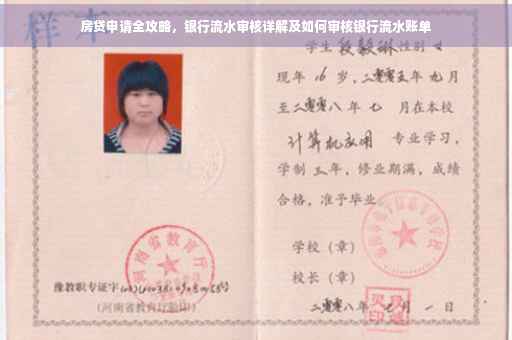 房贷申请全攻略，银行流水审核详解及如何审核银行流水账单
样本
学生段毅琳性别女
现年16岁，二零零五年九月
至二零零八年七月在本校
计算机应用专业学习，
学制三年，修业期满，成绩
合格，准予毕业。
学校（章）
校长（章）
二零零八年七月一日
河南省教育厅
豫教职专证字
(河南省教育厅验印)